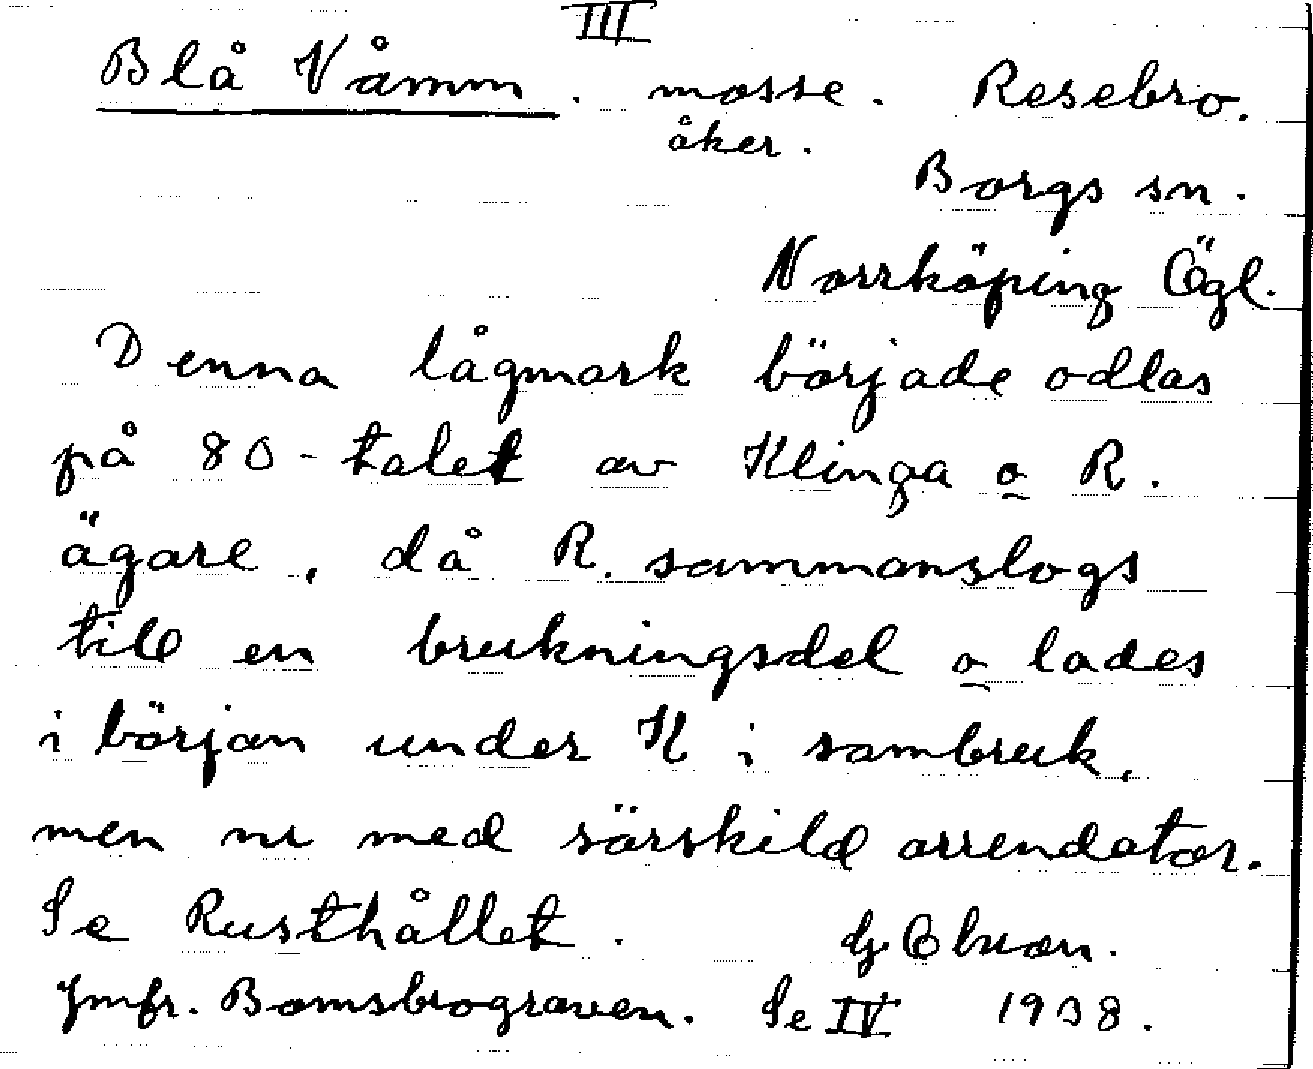 III
Blå Våmm. mosse. Resebro.
åker.
Borgs sn.
Norrköping Ögl.
Denna lågmark började odlas
på 80-talet av Klinga o R.
ägare, då R. sammanslogs
till en brukningsdel o lades
i början under K i sambruk,
men nu med särskild arrendator.
Se Rusthållet.
Jmfr. Bomsbrograven. Se IV 1938.